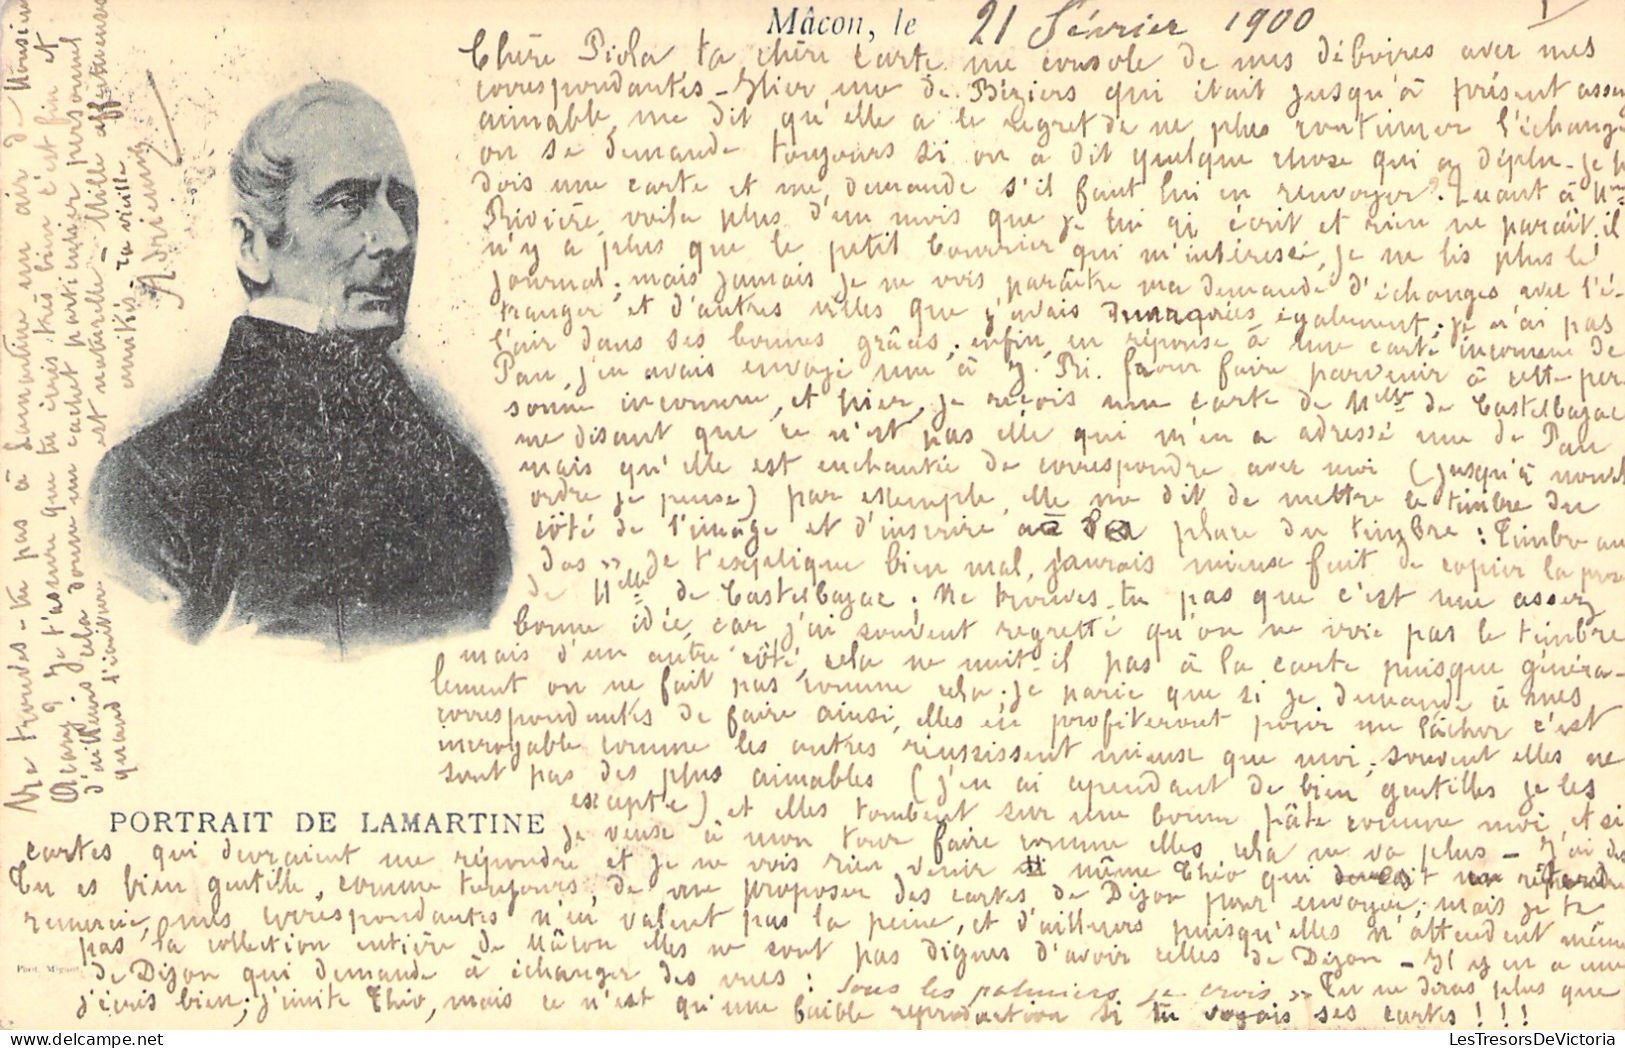 Mâcon, le 21 Février 1900
Chère Piola ta chère carte me console de mes déboires avec mes
correspondantes - Hier une de Béziers qui était jusqu'à présent assez
aimable, me dit qu'elle a le regret de ne plus continuer l'échange
on se demande toujours si on a dit quelque chose qui a déplu - Je
dois une carte et me demande s'il faut lui en renvoyer? Quant à Mme
Rivière, voila plus d'un mois que je lui ai écrit et rien ne paraît, il
n'y a plus que le petit Courrier qui m'intéresse, je ne lis plus le
journal; mais jamais je ne vois paraître ma demande d'échanges avec l'é-
tranger et d'autres villes que j'avais marquées également; je n'ai pas
l'air dans ses bonnes grâces; enfin, en réponse à une carte inconnue de
Pau, j'en avais envoyé une à J. Ri. pour faire parvenir à cette per
sonne inconnue, et hier, je reçois une carte de Melle de Castelbajac
me disant que ce n'est pas elle qui m'en a adressé une de Pau
mais qu'elle est enchantée de correspondre avec moi (jusqu'à nouvel
ordre je pense) par exemple, elle me dit de mettre le timbre du
côté de l'image et d'inscrire à la place du timbre: Timbre au
dos" Je t'explique bien mal, j'aurais mieux fait de copier la
de Melle de Castelbajac. Ne trouves-tu pas que c'est une assez
bonne idée, car j'ai souvent regretté qu'on ne voie pas le timbre
mais d'un autre côté, cela ne nuit-il pas à la carte puisque généra-
lement on ne fait pas comme cela. Je parie que si je demande à mes
correspondantes de faire ainsi, elles en profiteront pour me lâcher c'est
incroyable comme les autres réussissent mieux que moi; souvent elles ne
sont pas des plus aimables (j'en ai cependant de bien gentilles je les
excepte) et elles tombent sur une bonne pâte comme moi, et si
PORTRAIT DE LAMARTINE
je veux à mon tour faire comme elles cela ne va plus - J'ai des
cartes qui devraient me répondre et je ne vois rien venir même Théo qui devrait me répondre
Tu es bien gentille, comme toujours, de me proposer des cartes de Dijon pour envoyer; mais je te
remercie, mes correspondantes n'en valent pas la peine, et d'ailleurs puisqu'elles n'attendent même
pas la collection entière de Mâcon elles ne sont pas dignes d'avoir celles de Dijon - Il y en a une
de Dijon qui demande à échanger des vues: "Sous les palmiers je crois" Tu ne diras plus que
j'écris bien; j'imite Théo, mais ce n'est qu'une faible reproduction si tu voyais ses cartes!!!
Phot. Miguet
Ne trouves-tu pas à Lamartine un air de Monsieur
Ocary? Je t'assure que tu écris très bien c'est fin et
d'ailleurs cela donne un cachet particulier personnel
quand l'écriture est naturelle - Mille affectueuses
amitiés ta vieille
Adrienne
LesTresorsDeVictoria